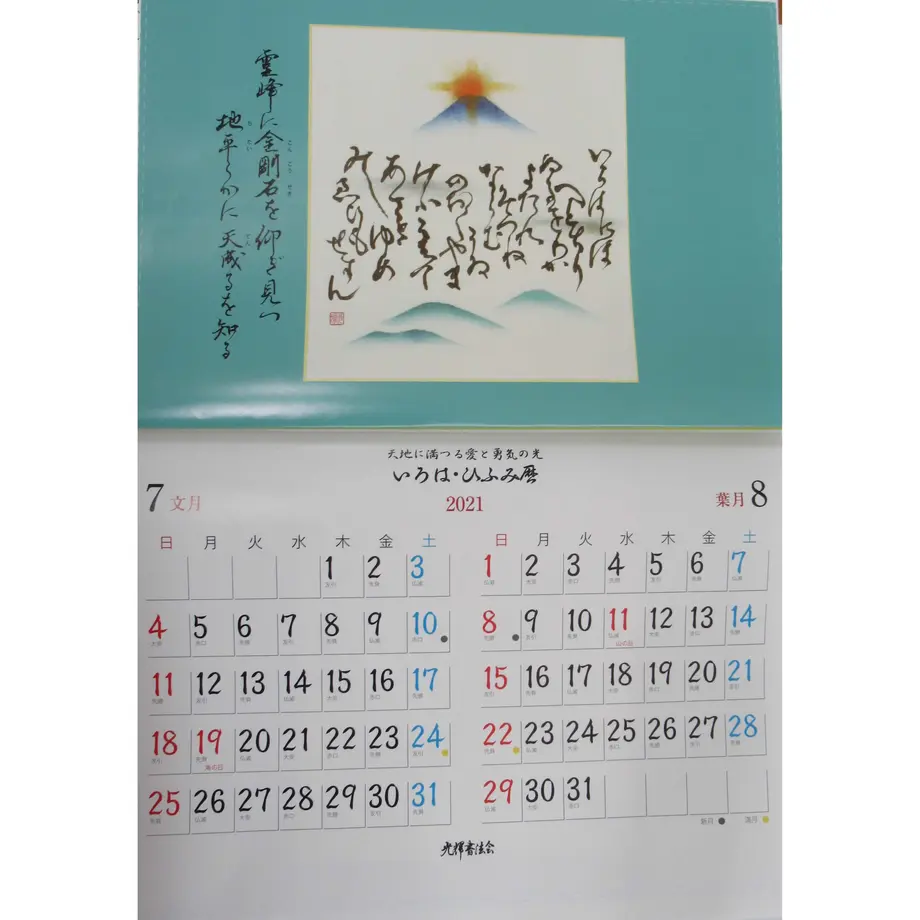 霊峰に金剛石を仰ぎ見つ
地平らかに天成るを知る
いろはにほ
へとちり
ぬるをわか
よたれそ
つね
ならむ
うゐ
のおくやま
けふこえて
あさき
ゆめ
みし
ゑひもせすん
天地に満つる愛と勇気の光
いろは・ひふみ暦
7 文月
2021
葉月 8
日 月 火 水 木 金 土
1 2 3
4 5 6 7 8 9 10
11 12 13 14 15 16 17
18 19 20 21 22 23 24
海の日
25 26 27 28 29 30 31
日 月 火 水 木 金 土
1 2 3 4 5 6 7
8 9 10 11 12 13 14
山の日
15 16 17 18 19 20 21
22 23 24 25 26 27 28
29 30 31
新月 満月
光輝書法会